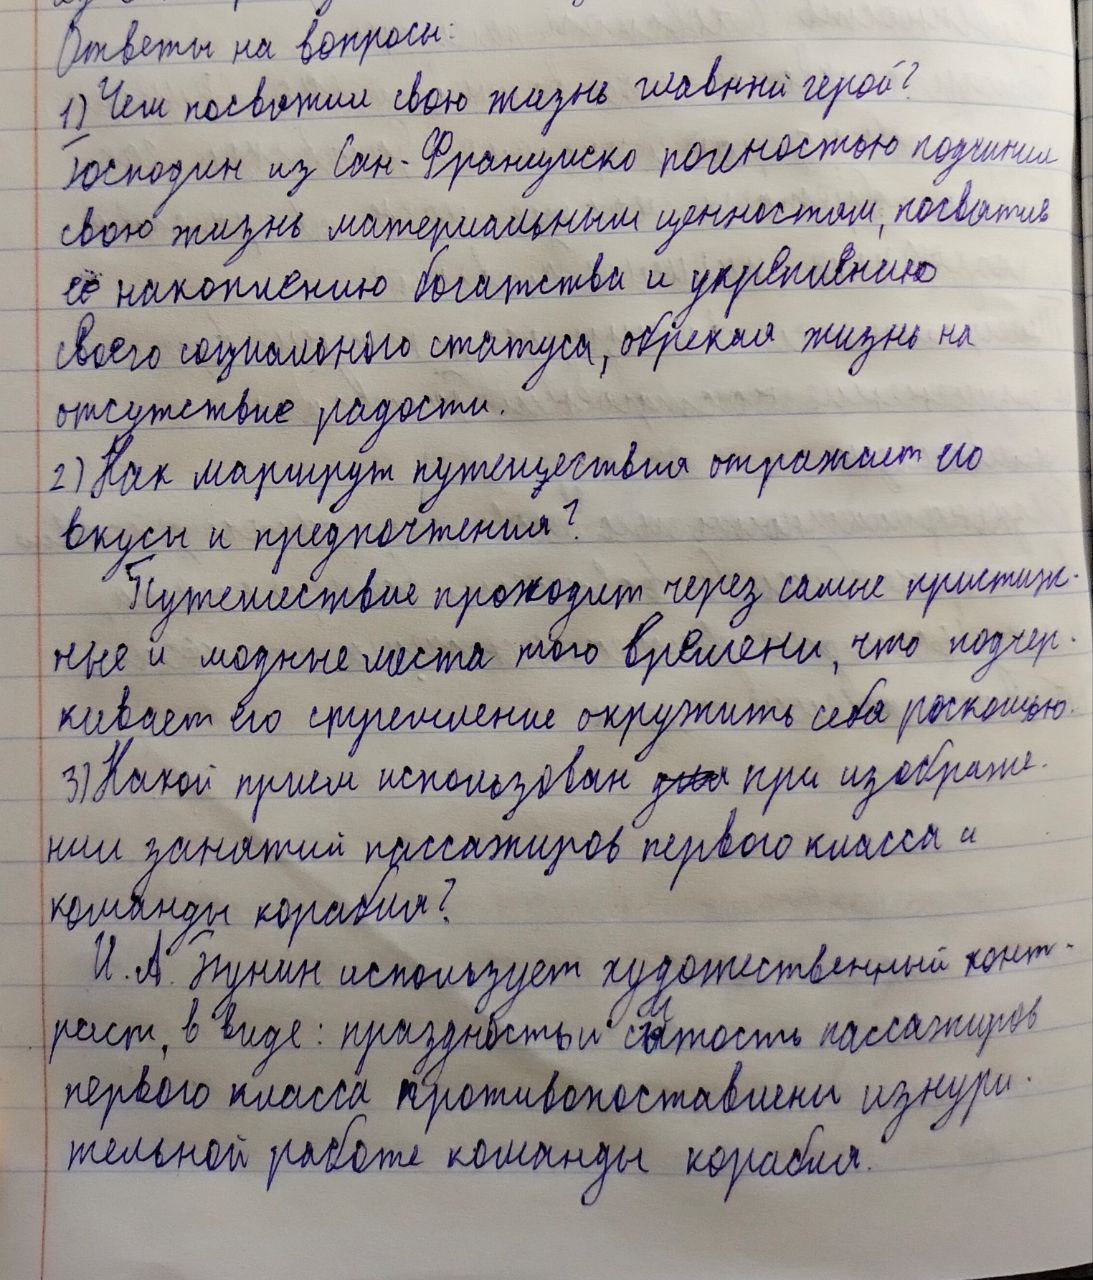 Ответы на вопросы:
1) Чем посвятил свою жизнь главный герой?
Господин из Сан-Франциско полностью подчинил
свою жизнь материальным ценностям, посвятив
её накоплению богатства и укреплению
своего социального статуса, обрекая жизнь на
отсутствие радости.
2) Как маршрут путешествия отражает его
вкусы и предпочтения?
Путешествие проходит через самые пристиж-
ные и модные места того времени, что подчер-
кивает его стремление окружить себя роскошью.
3) Какой прием использован при изображе-
нии занятий пассажиров первого класса и
команды корабля?
И. А. Бунин использует художественный конт-
раст, в виде: праздность и сытость пассажиров
первого класса противопоставлены изнури-
тельной работе команды корабля.